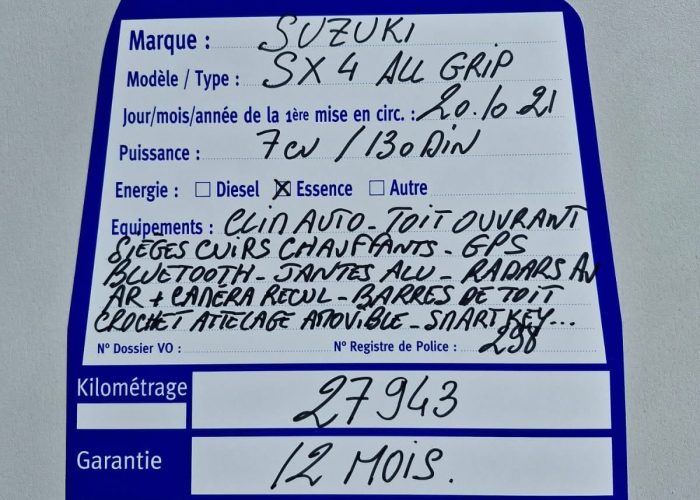 Marque : SUZUKI
Modèle / Type : SX 4 ALL GRIP
Jour/mois/année de la 1ère mise en circ. : 20.10 21
Puissance : 7 CV / 130 DIN
Energie : ☐ Diesel ☒ Essence ☐ Autre
Equipements : CLIM AUTO - TOIT OUVRANT
SIÈGES CUIRS CHAUFFANTS - GPS
BLUETOOTH - JANTES ALU - RADARS AV
AR + CAMÉRA RECUL - BARRES DE TOIT
CROCHET ATTELAGE AMOVIBLE - SMART KEY...
N° Dossier VO : N° Registre de Police : 298
Kilométrage 27943
Garantie 12 MOIS.